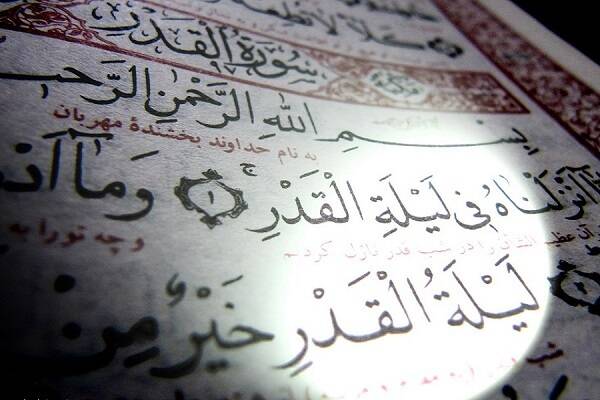 كَلَّا لَا تُطِعْهُ
سُورَةُ الْقَدْرِ
بِسْمِ اللهِ الرَّحْمٰنِ الرَّح
به نام خداوند بخشندهٔ مهربان
أَنْزَلْنَاهُ فِی لَيْلَةِ الْقَدْرِ ۱ وَمَا أَن
را در شب قدر نازل کردیم و چه تو را به
لَيْلَةُ الْقَدْرِ خَيْرٌ مِنْ
شب